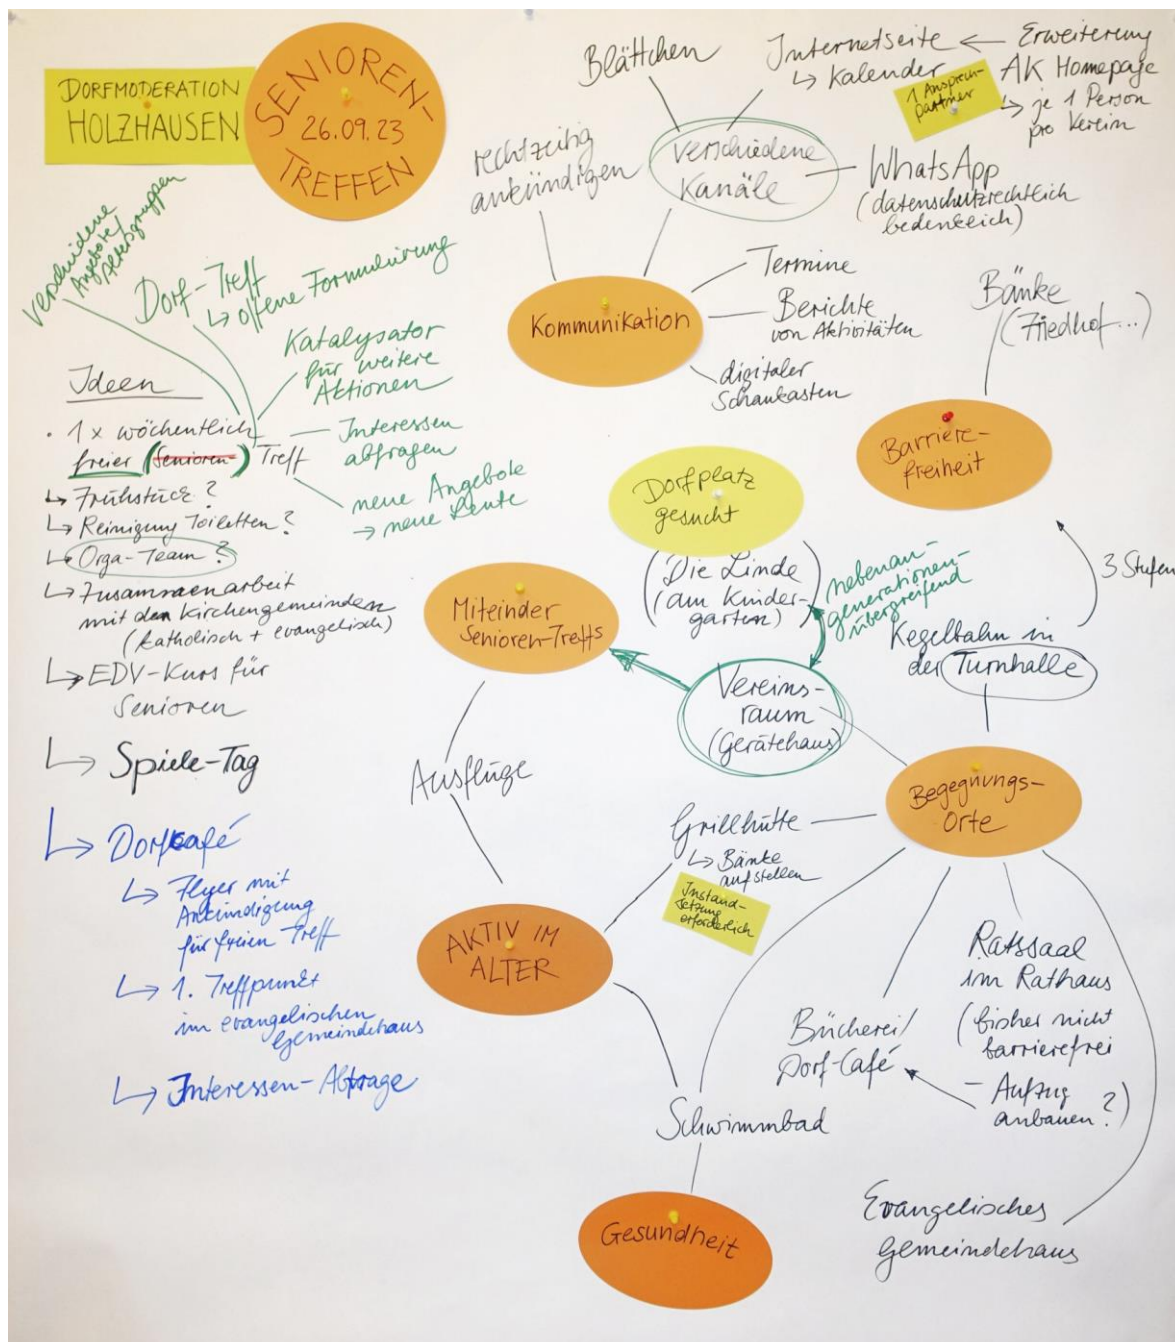 DORFMODERATION
HOLZHAUSEN
SENIOREN-
26.09.23
TREFFEN
verschiedene
Angebote/
Altersgruppen
Dorf-Treff
↳ offene Formulierung
Katalysator
für weitere
Aktionen
Interessen
abfragen
neue Angebote
→ neue Leute
Ideen
· 1x wöchentlich
freier (Senioren-) Treff
↳ Frühstück?
↳ Reinigung Toiletten?
↳ Orga-Team?
↳ Zusammenarbeit
mit den Kirchengemeinden
(katholisch + evangelisch)
↳ EDV-Kurs für
Senioren
↳ Spiele-Tag
↳ Dorfcafé
↳ Flyer mit
Ankündigung
für freien Treff
↳ 1. Treffpunkt
im evangelischen
Gemeindehaus
↳ Interessen-Abfrage
Blättchen
Internetseite ←
↳ Kalender
Erweiterung
AK Homepage
↳ je 1 Person
pro Verein
1 Ansprech-
partner
rechtzeitig
ankündigen
verschiedene
Kanäle
WhatsApp
(datenschutzrechtlich
bedenklich)
Kommunikation
Termine
Berichte
von Aktivitäten
digitaler
Schaukasten
Bänke
(Friedhof...)
Barriere-
freiheit
3 Stufen
Dorfplatz
gesucht
(Die Linde)
(am Kinder-
garten)
nebenan-
generationen-
übergreifend
Miteinder
Senioren-Treffs
Vereins-
raum
(Gerätehaus)
Kegelbahn in
der Turnhalle
Begegnungs-
Orte
Ausflüge
Grillhütte
↳ Bänke
aufstellen
Instand-
setzung
erforderlich
AKTIV IM
ALTER
Bücherei/
Dorf-Café
Ratssaal
im Rathaus
(bisher nicht
barrierefrei
- Aufzug
anbauen?)
Schwimmbad
Evangelisches
Gemeindehaus
Gesundheit